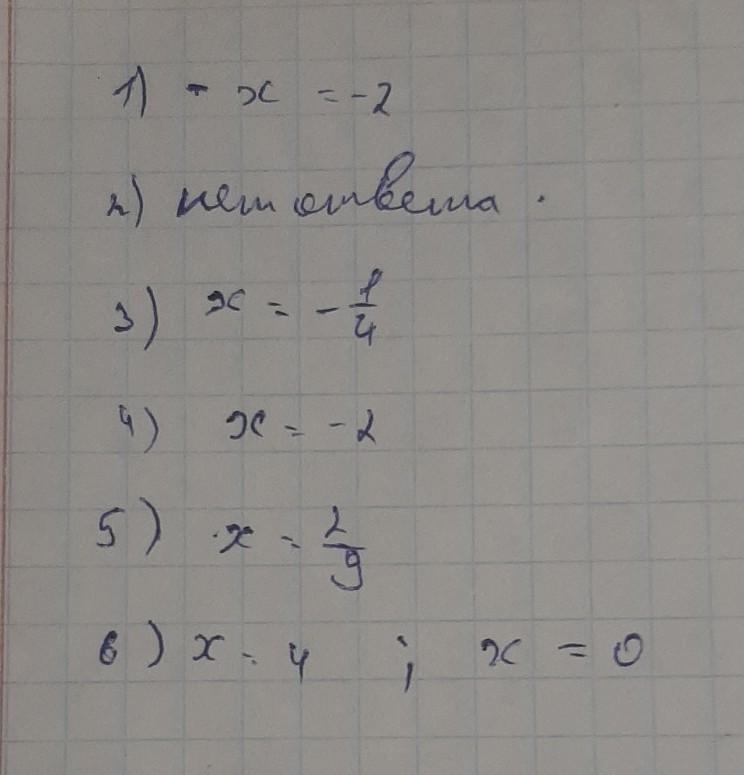 1) - x = -2
2) нет ответа.
3) x = - 1/4
4) x = -2
5) x = 2/9
6) x = 4 ; x = 0